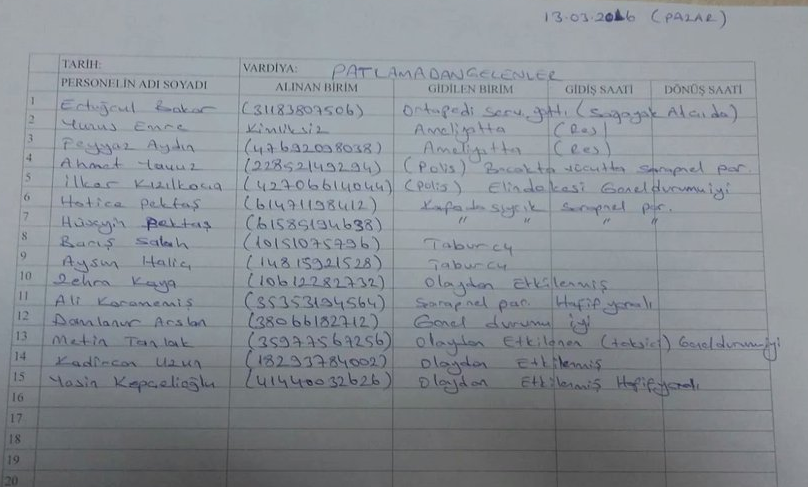 13.03.2016 (PAZAR)
TARİH: VARDİYA: PATLAMADAN GELENLER
PERSONELİN ADI SOYADI ALINAN BİRİM GİDİLEN BİRİM GİDİŞ SAATİ DÖNÜŞ SAATİ
1 Ertuğrul Bakar (31183807506) Ortopedi serv. gitti (Sağayak Alçıda)
2 Yunus Emre Kimliksiz Ameliyatta (Res)
3 Feyyaz Aydın (47692098038) Ameliyatta (Res)
4 Ahmet Yavuz (22852149294) (Polis) Bacakta vücutta şarapnel par.
5 İlker Kızılkoca (42706614044) (Polis) Elinde kesi Genel durumu iyi
6 Hatice Pektaş (61471198412) Kafada sıyrık şarapnel par.
7 Hüseyin Pektaş (61585194638) " " " "
8 Barış Salah (10151075796) Taburcu
9 Aysun Haliç (14815921528) Taburcu
10 Zehra Kaya (10612282732) Olaydan Etkilenmiş
11 Ali Karamemiş (35353194564) Şarapnel par. Hafif yaralı
12 Damlanur Arslan (38066182712) Genel durumu iyi
13 Metin Tanlak (35977567256) Olaydan Etkilenen (taksici) Genel durumu iyi
14 Kadircan Uzun (18293784002) Olaydan Etkilenmiş
15 Yasin Kepçelioğlu (41440032626) Olaydan Etkilenmiş Hafif yaralı
16
17
18
19
20